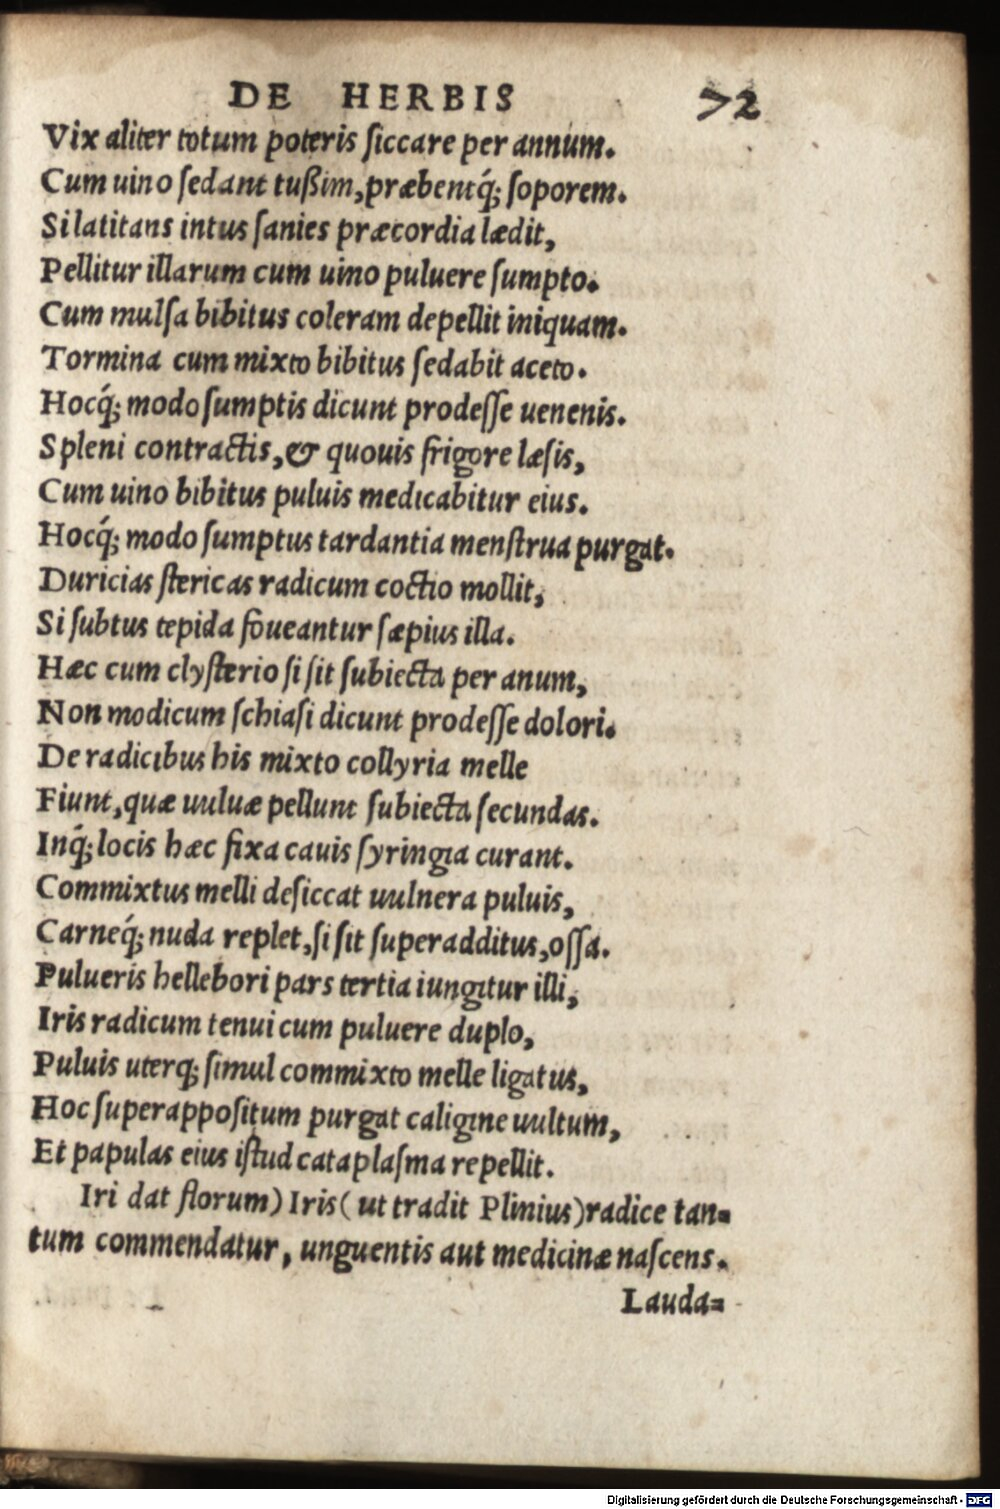 DE HERBIS 72
Vix aliter totum poteris ſiccare per annum.
Cum uino ſedant tußim, præbentq́; ſoporem.
Si latitans intus ſanies præcordia lædit,
Pellitur illarum cum uino puluere ſumpto.
Cum mulſa bibitus coleram depellit iniquam.
Tormina cum mixto bibitus ſedabit aceto.
Hocq́; modo ſumptis dicunt prodeſſe uenenis.
Spleni contractis, & quouis frigore læſis,
Cum uino bibitus puluis medicabitur eius.
Hocq́; modo ſumptus tardantia menſtrua purgat.
Duricias ſtericas radicum coctio mollit,
Si ſubtus tepida foueantur ſæpius illa.
Hæc cum clyſterio ſi ſit ſubiecta per anum,
Non modicum ſchiaſi dicunt prodeſſe dolori.
De radicibus his mixto collyria melle
Fiunt, quæ uuluæ pellunt ſubiecta ſecundas.
Inq́; locis hæc fixa cauis ſyringia curant.
Commixtus melli deſiccat uulnera puluis,
Carneq́; nuda replet, ſi ſit ſuperadditus, oſſa.
Pulueris hellebori pars tertia iungitur illi,
Iris radicum tenui cum puluere duplo,
Puluis uterq; ſimul commixto melle ligatus,
Hoc ſuperappoſitum purgat caligine uultum,
Et papulas eius iſtud cataplaſma repellit.
Iri dat florum) Iris (ut tradit Plinius) radice tan-
tum commendatur, unguentis aut medicinæ naſcens.
Lauda-
Digitalisierung gefördert durch die Deutsche Forschungsgemeinschaft - DFG